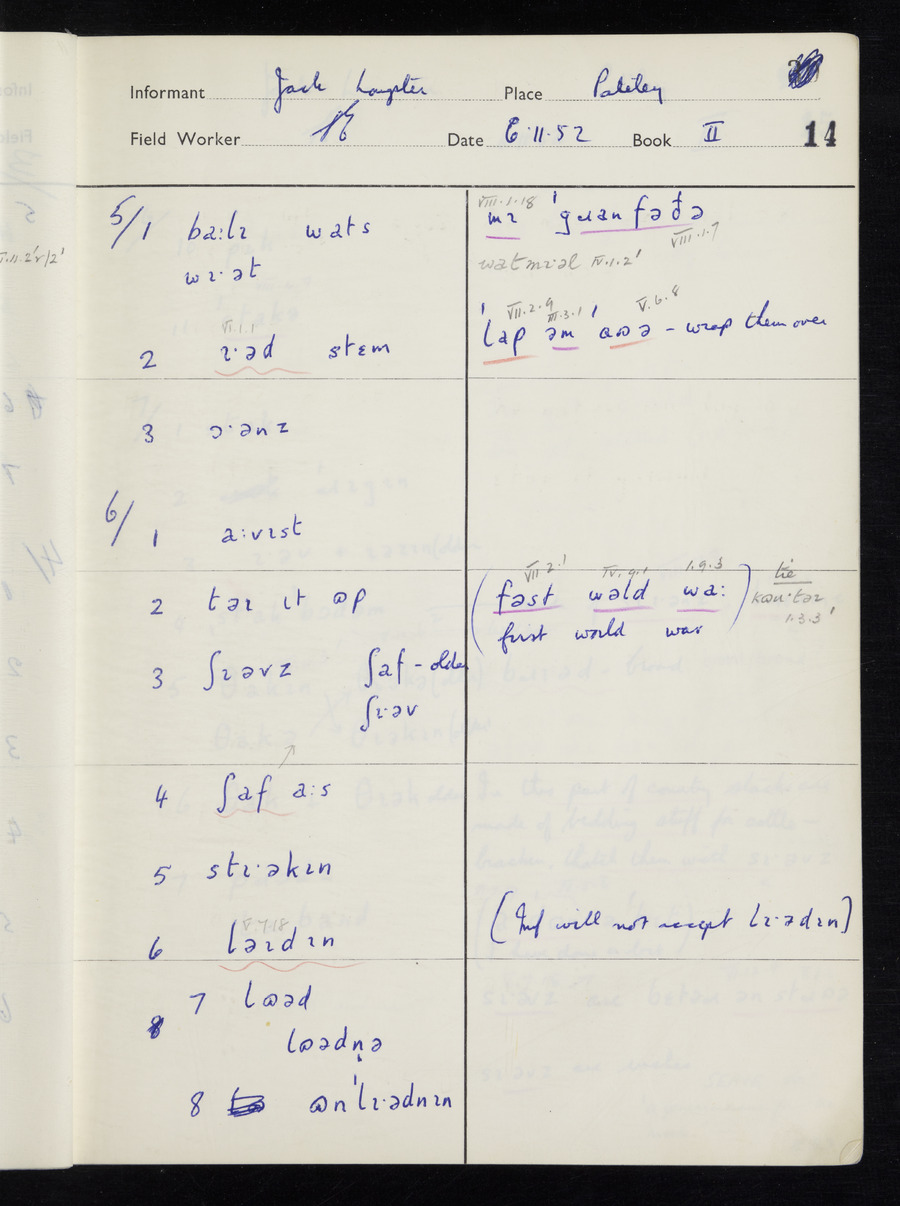 Informant Jack Longster Place Pateley
Field Worker Date 6.11.52 Book II 14
5/1 ba:lɪ wats
wɪ·ət
VI.1.1
2 ɪ·əd stɛm
3 ɔ·ənz
6/1 a:vɪst
2 təɪ ɪt ɷp
3 ʃɪəvz ʃaf - older
ʃɪ·əv
4 ʃaf a:s
5 stɪ·əkɪn
V.7.18
6 ləɪdɪn
7 lɷəd
8 lɷədn̩ə
8 ɷnˈlɪ·ədnɪn
VIII.1.18
mɪ ˈgɹanfəðə
VIII.1.7
watmɪ·əl IV.1.2'
VII.2.9 III.3.1 V.6.8
ˈlap əm ˈaɷə - wrap them over
VII.2.1 IV.9.1 1.9.3
(fəst wəld wa:)
first world war
tie
kaʊ·təɪ
1.3.3'
(Inf will not accept lɪ·ədɪn)